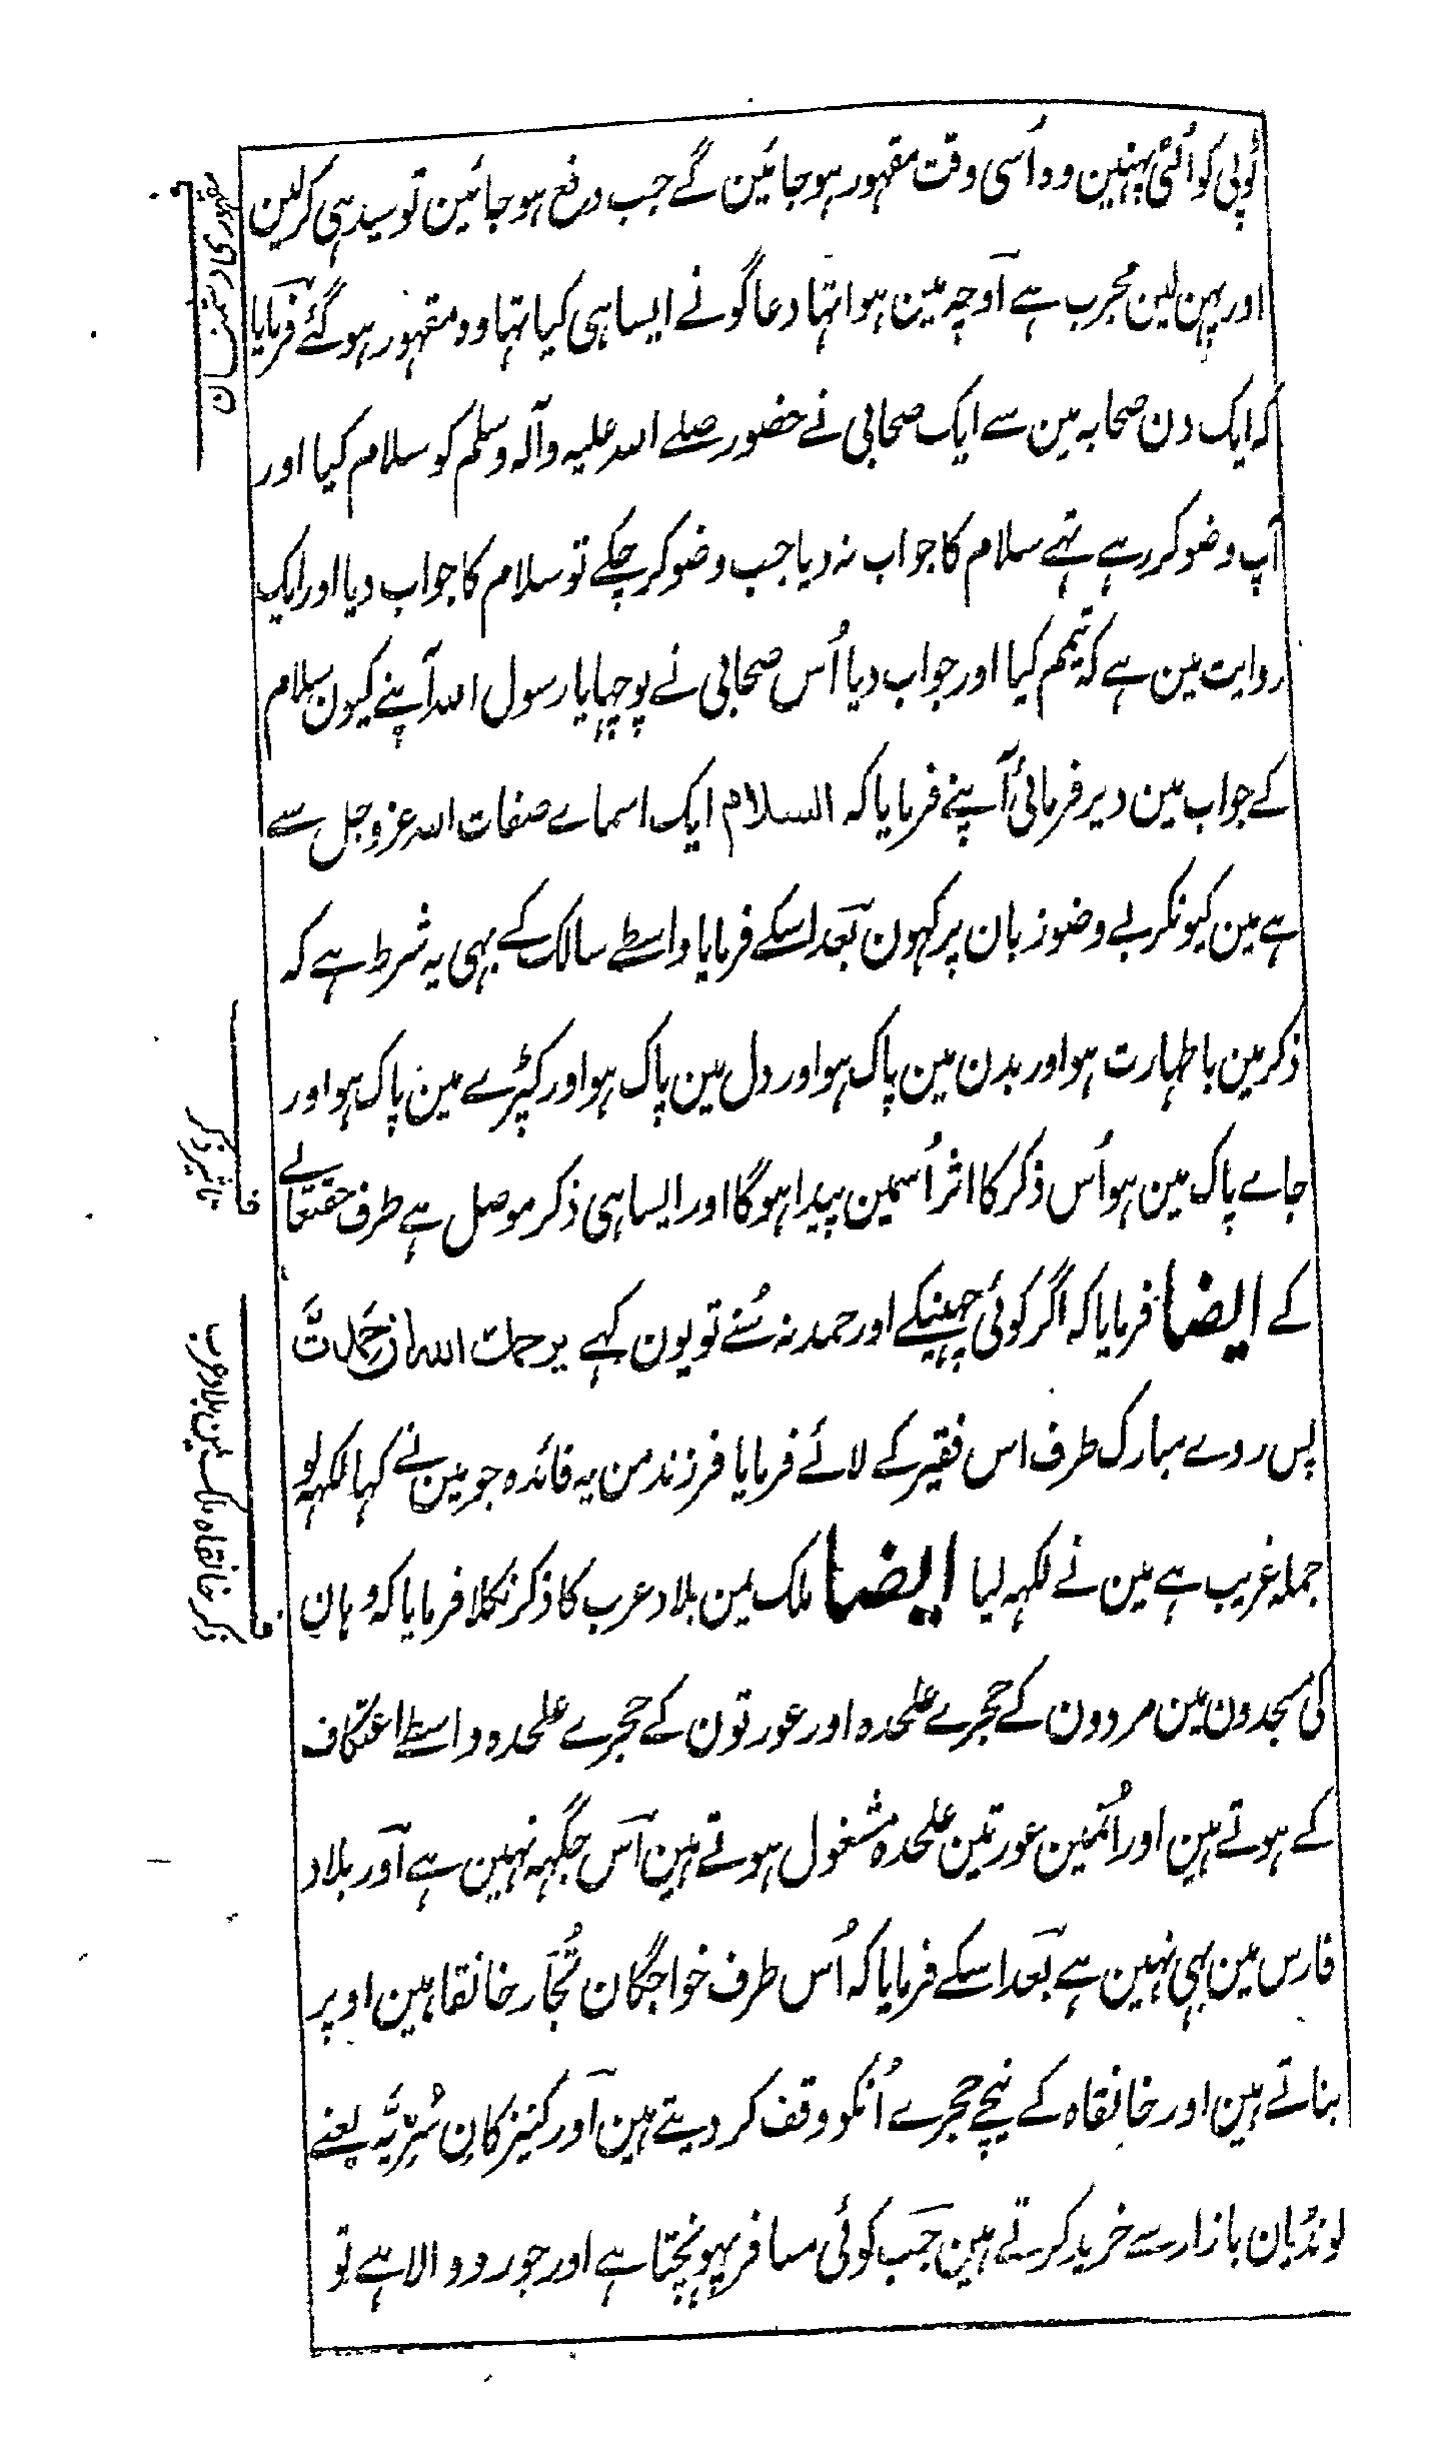 ٹوپی کو اُلٹی پہنین وہ اُسی وقت مقہور ہو جائین گے جب دفع ہو جائین تو سیدہی کرلین
اور پہن لین مجرب ہے آوچہ مین ہوا تہا دعاگو نے ایسا ہی کیا تہا وہ مقہور ہو گئے فرمایا
کہ ایک دن صحابہ مین سے ایک صحابی نے حضور صلے اللہ علیہ وآلہ وسلم کو سلام کیا اور
آپ وضو کر رہے تہے سلام کا جواب نہ دیا جب وضو کر چکے تو سلام کا جواب دیا اور ایک
روایت مین ہے کہ تیمم کیا اور جواب دیا اُس صحابی نے پوچہا یا رسول اللہ آپنے کیون سلام
کے جواب مین دیر فرمائی آپنے فرمایا کہ السلام ایک اسماے صفات اللہ عز وجل سے
ہے مین کیونکر بے وضو زبان پر کہون بعد اسکے فرمایا واسطے سالک کے بہی یہ شرط ہے کہ
ذکر مین باطہارت ہو اور بدن مین پاک ہو اور دل مین پاک ہو اور کپڑے مین پاک ہو اور
جاے پاک مین ہو اُس ذکر کا اثر اُسمین پیدا ہوگا اور ایسا ہی ذکر موصل ہے طرف حقتعالے
کے ایضا فرمایا کہ اگر کوئی چہینکے اور حمد نہ سُنے تو یون کہے یرحمك الله ان حَمِدتَّ
پس روے مبارک طرف اس فقیر کے لائے فرمایا فرزند من یہ فائدہ جو مین نے کہا لکہہ لو
جملہ غریب ہے مین نے لکہہ لیا ایضا ملک یمن بلاد عرب کا ذکر نکلا فرمایا کہ وہان
کی مسجدون مین مردون کے حجرے علحدہ اور عورتون کے حجرے علحدہ واسطے اعتکاف
کے ہوتے ہین اور اُنمین عورتین علحدہ مشغول ہوتے ہین اس جگہہ نہین ہے اور بلاد
فارس مین بہی نہین ہے بعد اسکے فرمایا کہ اُس طرف خواجگان تُجّار خانقاہین اوپر
بناتے ہین اور خانقاہ کے نیچے حجرے اُنکو وقف کر دیتے ہین اور کنیزکان سُرِّیَّہ یعنے
لونڈیان بازار سے خرید کرتے ہین جب کوئی مسافر پہونچتا ہے اور جورو والا ہے تو